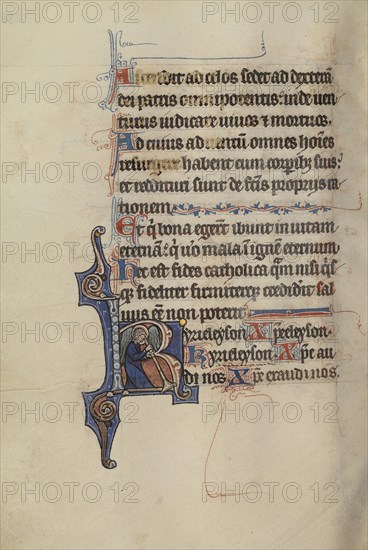 Ascendit ad celos sedet ad dexterā
dei patris omnipotentis: inde ven
turus iudicare uiuos & mortuos.
Ad cuius aduentū omnes hoīes
resurgere habent cum corporibꝫ suis:
et reddituri sunt de fc̄is propriis ra
tionem.
Et q̄ bona egerūt ibunt in uitam
eternā: q̄ uo mala ī ignē eternum
Hec est fides catholica q̄m nisi q̄s
qꝫ fideliter firmiterqꝫ crediderit sal
uus eē non poterit.
Kyrieleyson Xp̄eleyson.
Kyrieleyson. Xp̄e au
di nos. Xp̄e exaudi nos.
PHOTO 12